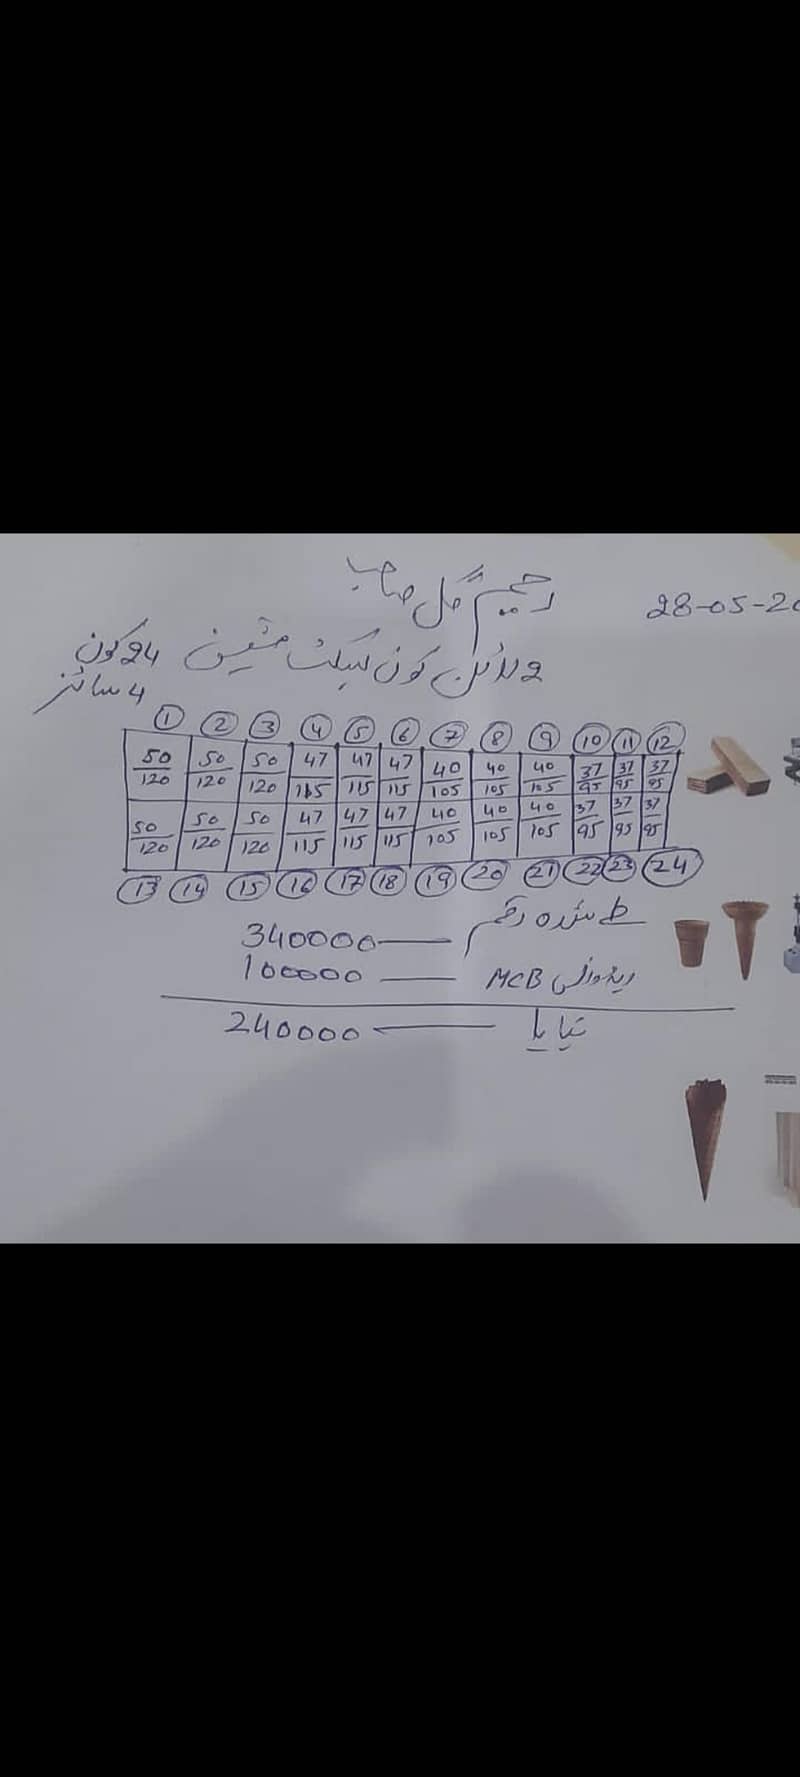 رحیم گل صاحب
28-05-20
2 لائن کون بسکٹ مشین 24 کون
4 سائز
1 2 3 4 5 6 7 8 9 10 11 12
50/120 50/120 50/120 47/115 47/115 47/115 40/105 40/105 40/105 37/95 37/95 37/95
50/120 50/120 50/120 47/115 47/115 47/115 40/105 40/105 40/105 37/95 37/95 37/95
13 14 15 16 17 18 19 20 21 22 23 24
طے شدہ رقم — 340000
ایڈوانس MCB — 100000
بقایا — 240000